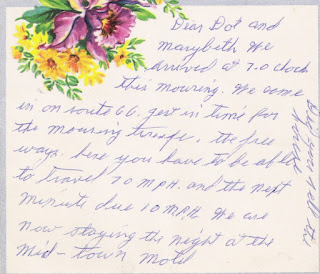 Dear Dot and
marybeth We
arrived at 7-0 clock
this mouring. We came
in on route 66. jest in time for
the mouring
the free
ways. here you have to be able
to travel 70 M.P.H. and the next
due 10 MPH We are
now staying the night at the
Mid-town Motel